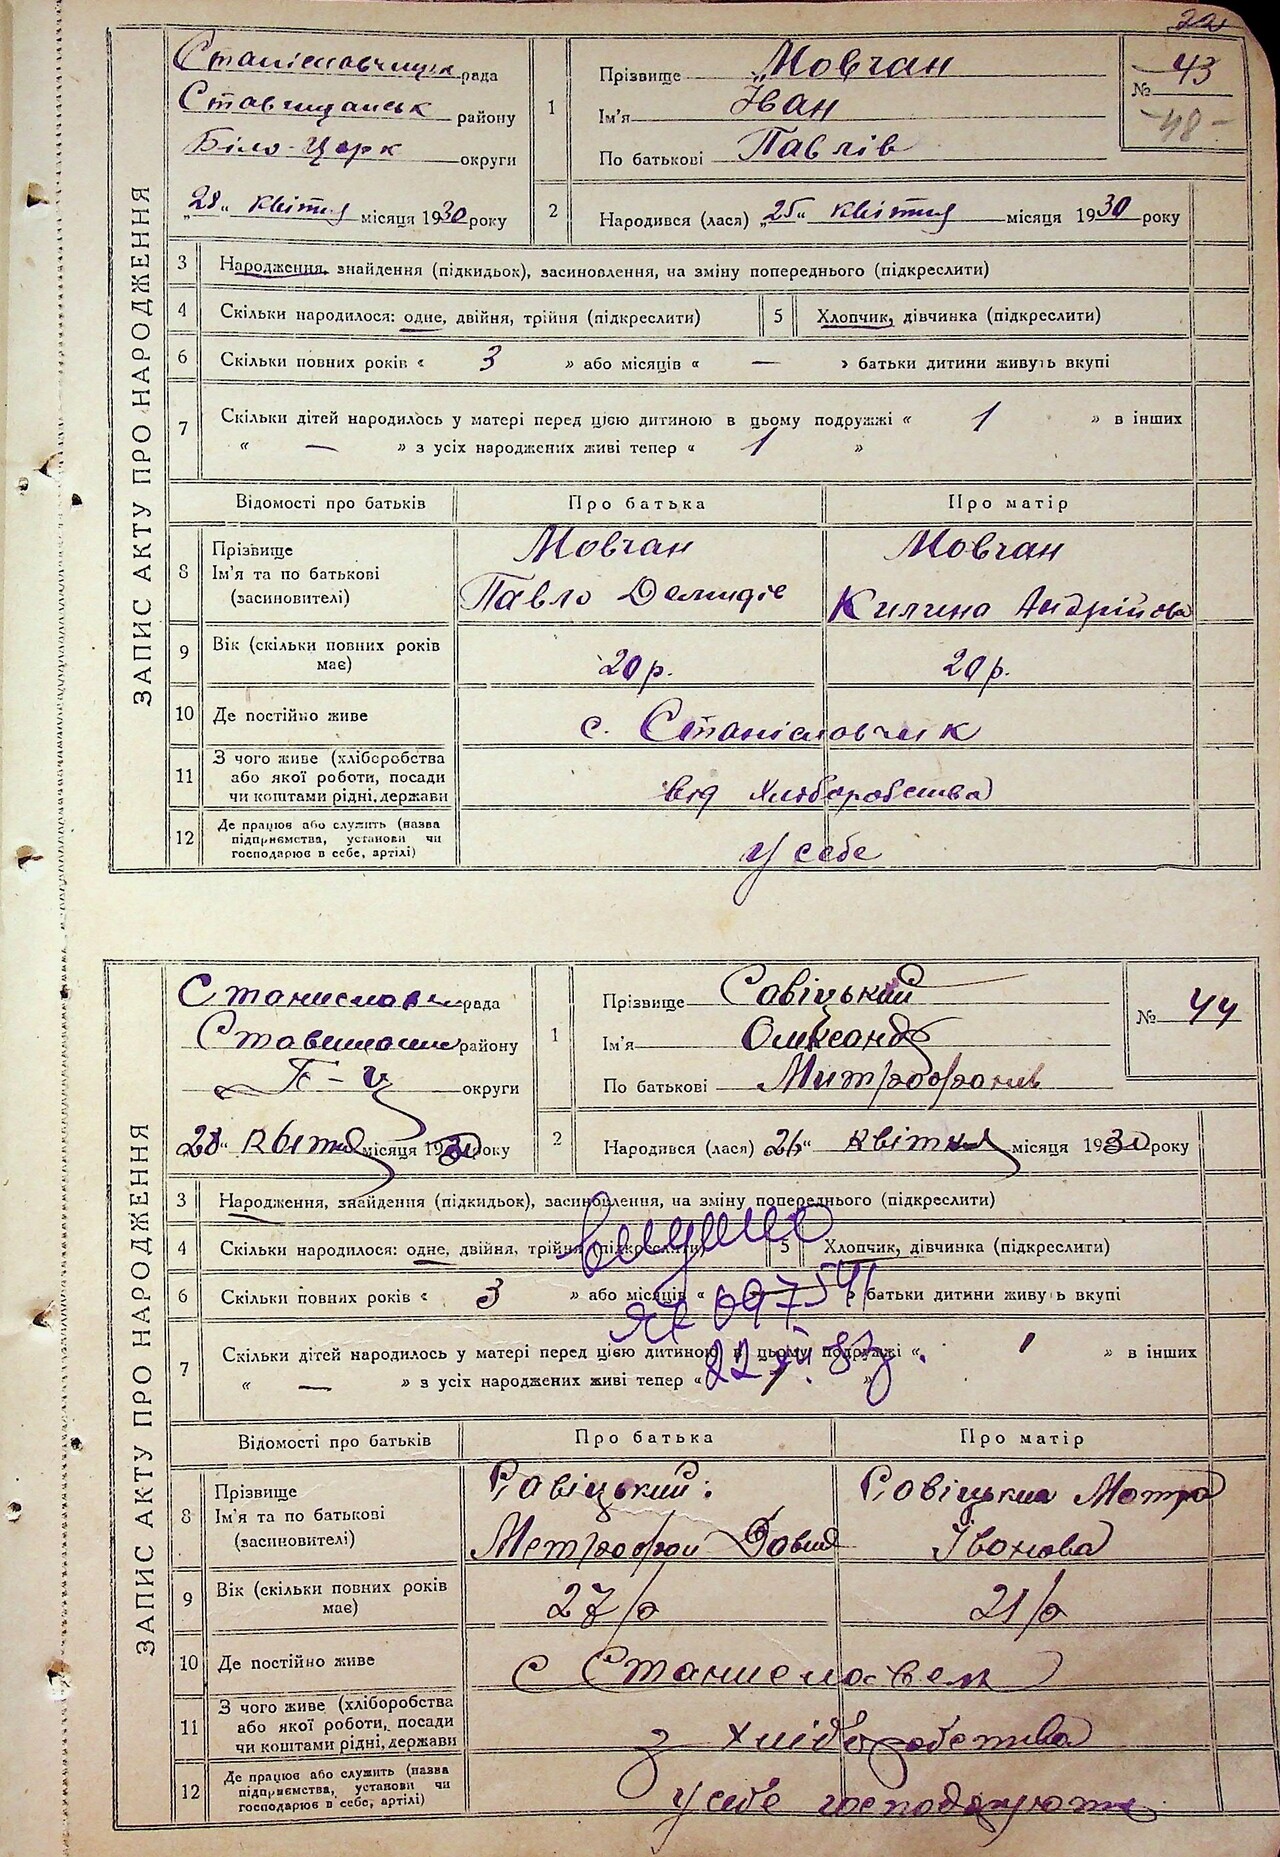 ЗАПИС АКТУ ПРО НАРОДЖЕННЯ
Станіславчицька рада
Ставищанськ району
Біло-Церк округи
„28“ квітня місяця 1930 року
1 Прізвище Мовчан
Ім'я Іван
По батькові Павлів
№ 43
-48-
2 Народився (лася) „25“ квітня місяця 1930 року
3 Народження, знайдення (підкидьок), засиновлення, на зміну попереднього (підкреслити)
4 Скільки народилося: одне, двійня, трійня (підкреслити) 5 Хлопчик, дівчинка (підкреслити)
6 Скільки повних років « 3 » або місяців « — » батьки дитини живуть вкупі
7 Скільки дітей народилось у матері перед цією дитиною в цьому подружжі « 1 » в інших
« — » з усіх народжених живі тепер « 1 »
Відомості про батьків Про батька Про матір
8 Прізвище Ім'я та по батькові (засиновителі)
Мовчан Мовчан
Павло Демидів Килина Андрійова
9 Вік (скільки повних років має) 20 р. 20 р.
10 Де постійно живе с. Станіславчик
11 З чого живе (хліборобства або якої роботи, посади чи коштами рідні, держави від хліборобства
12 Де працює або служить (назва підприємства, установи чи господарює в себе, артілі) у себе
ЗАПИС АКТУ ПРО НАРОДЖЕННЯ
рада
району
Б-Ц округи
28“ квітня місяця 1930 року
1 Прізвище Савіцький
Ім'я Олександр
По батькові Митрофанів
№ 44
2 Народився (лася) 26“ квітня місяця 1930 року
3 Народження, знайдення (підкидьок), засиновлення, на зміну попереднього (підкреслити)
4 Скільки народилося: одне, двійня, трійня (підкреслити) 5 Хлопчик, дівчинка (підкреслити)
6 Скільки повних років « 3 » або місяців « — » батьки дитини живуть вкупі
7 Скільки дітей народилось у матері перед цією дитиною в цьому подружжі « 1 » в інших
« — » з усіх народжених живі тепер « »
Відомості про батьків Про батька Про матір
8 Прізвище Ім'я та по батькові (засиновителі)
Савіцький Савіцька Мотря
Метрофан Давид Іванова
9 Вік (скільки повних років має) 27 р 21 р
10 Де постійно живе с
11 З чого живе (хліборобства або якої роботи, посади чи коштами рідні, держави з хліборобства
12 Де працює або служить (назва підприємства, установи чи господарює в себе, артілі) у себе господарюють